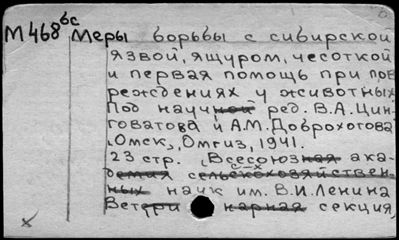 М468бс Меры борьбы с сибирской
язвой, ящуром, чесоткой
и первая помощь при пов
реждениях у животных
Под научной ред. В.А. Цин-
говатова и А.М. Доброхотова
Омск, Омгиз, 1941.
23 стр. (Всесоюзная ака-
демия сельскохозяйствен-
ных наук им. В.И. Ленина
Ветери нарная секция,